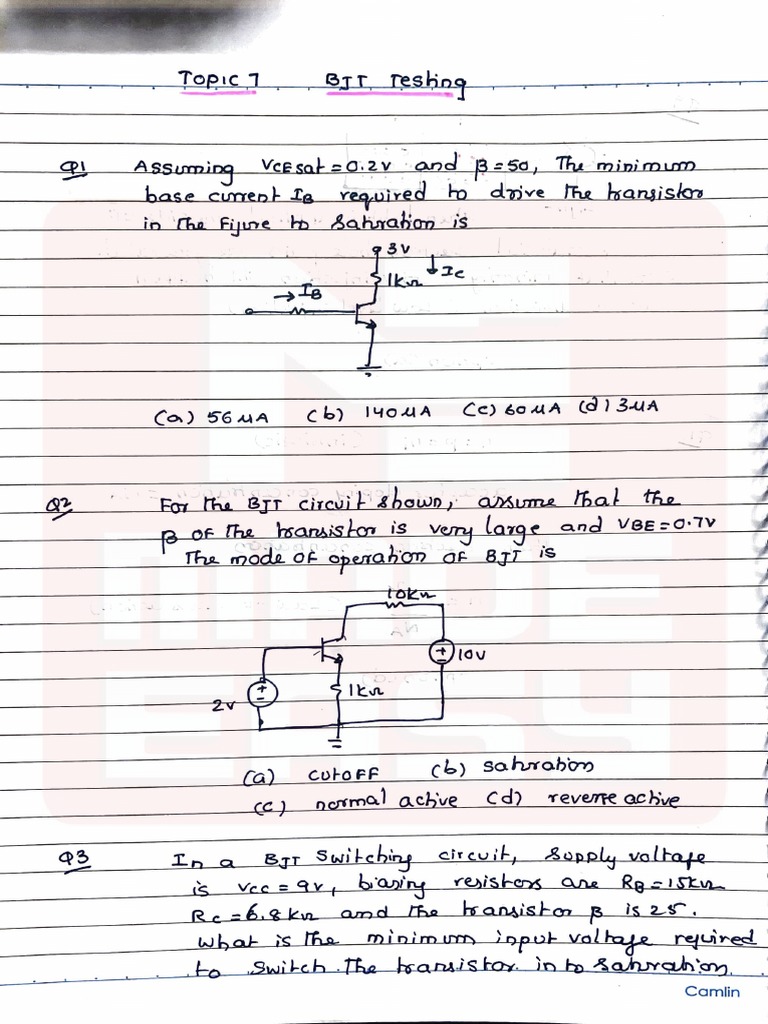 Topic 7 BJT Testing
Q1 Assuming VCEsat = 0.2V and β=50, The minimum
base current IB required to drive the transistor
in the Figure to saturation is
3V
1kΩ
IC
IB
(a) 56 μA (b) 140 μA (c) 60 μA (d) 3 μA
Q2 For the BJT circuit shown, assume that the
β of the transistor is very large and VBE = 0.7V
The mode of operation of BJT is
10kΩ
10V
1kΩ
2V
(a) cutoff (b) saturation
(c) normal active (d) reverse active
Q3 In a BJT switching circuit, supply voltage
is Vcc = 9V, biasing resistors are RB = 15kΩ
Rc = 6.8kΩ and the transistor β is 25.
What is the minimum input voltage required
to switch the transistor in to saturation.
Camlin
MADE
EASY